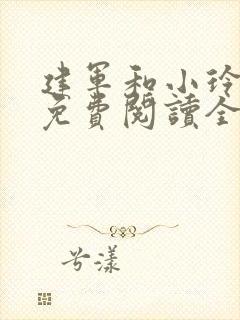 建军和小玲
免費閱讀全
兮漾